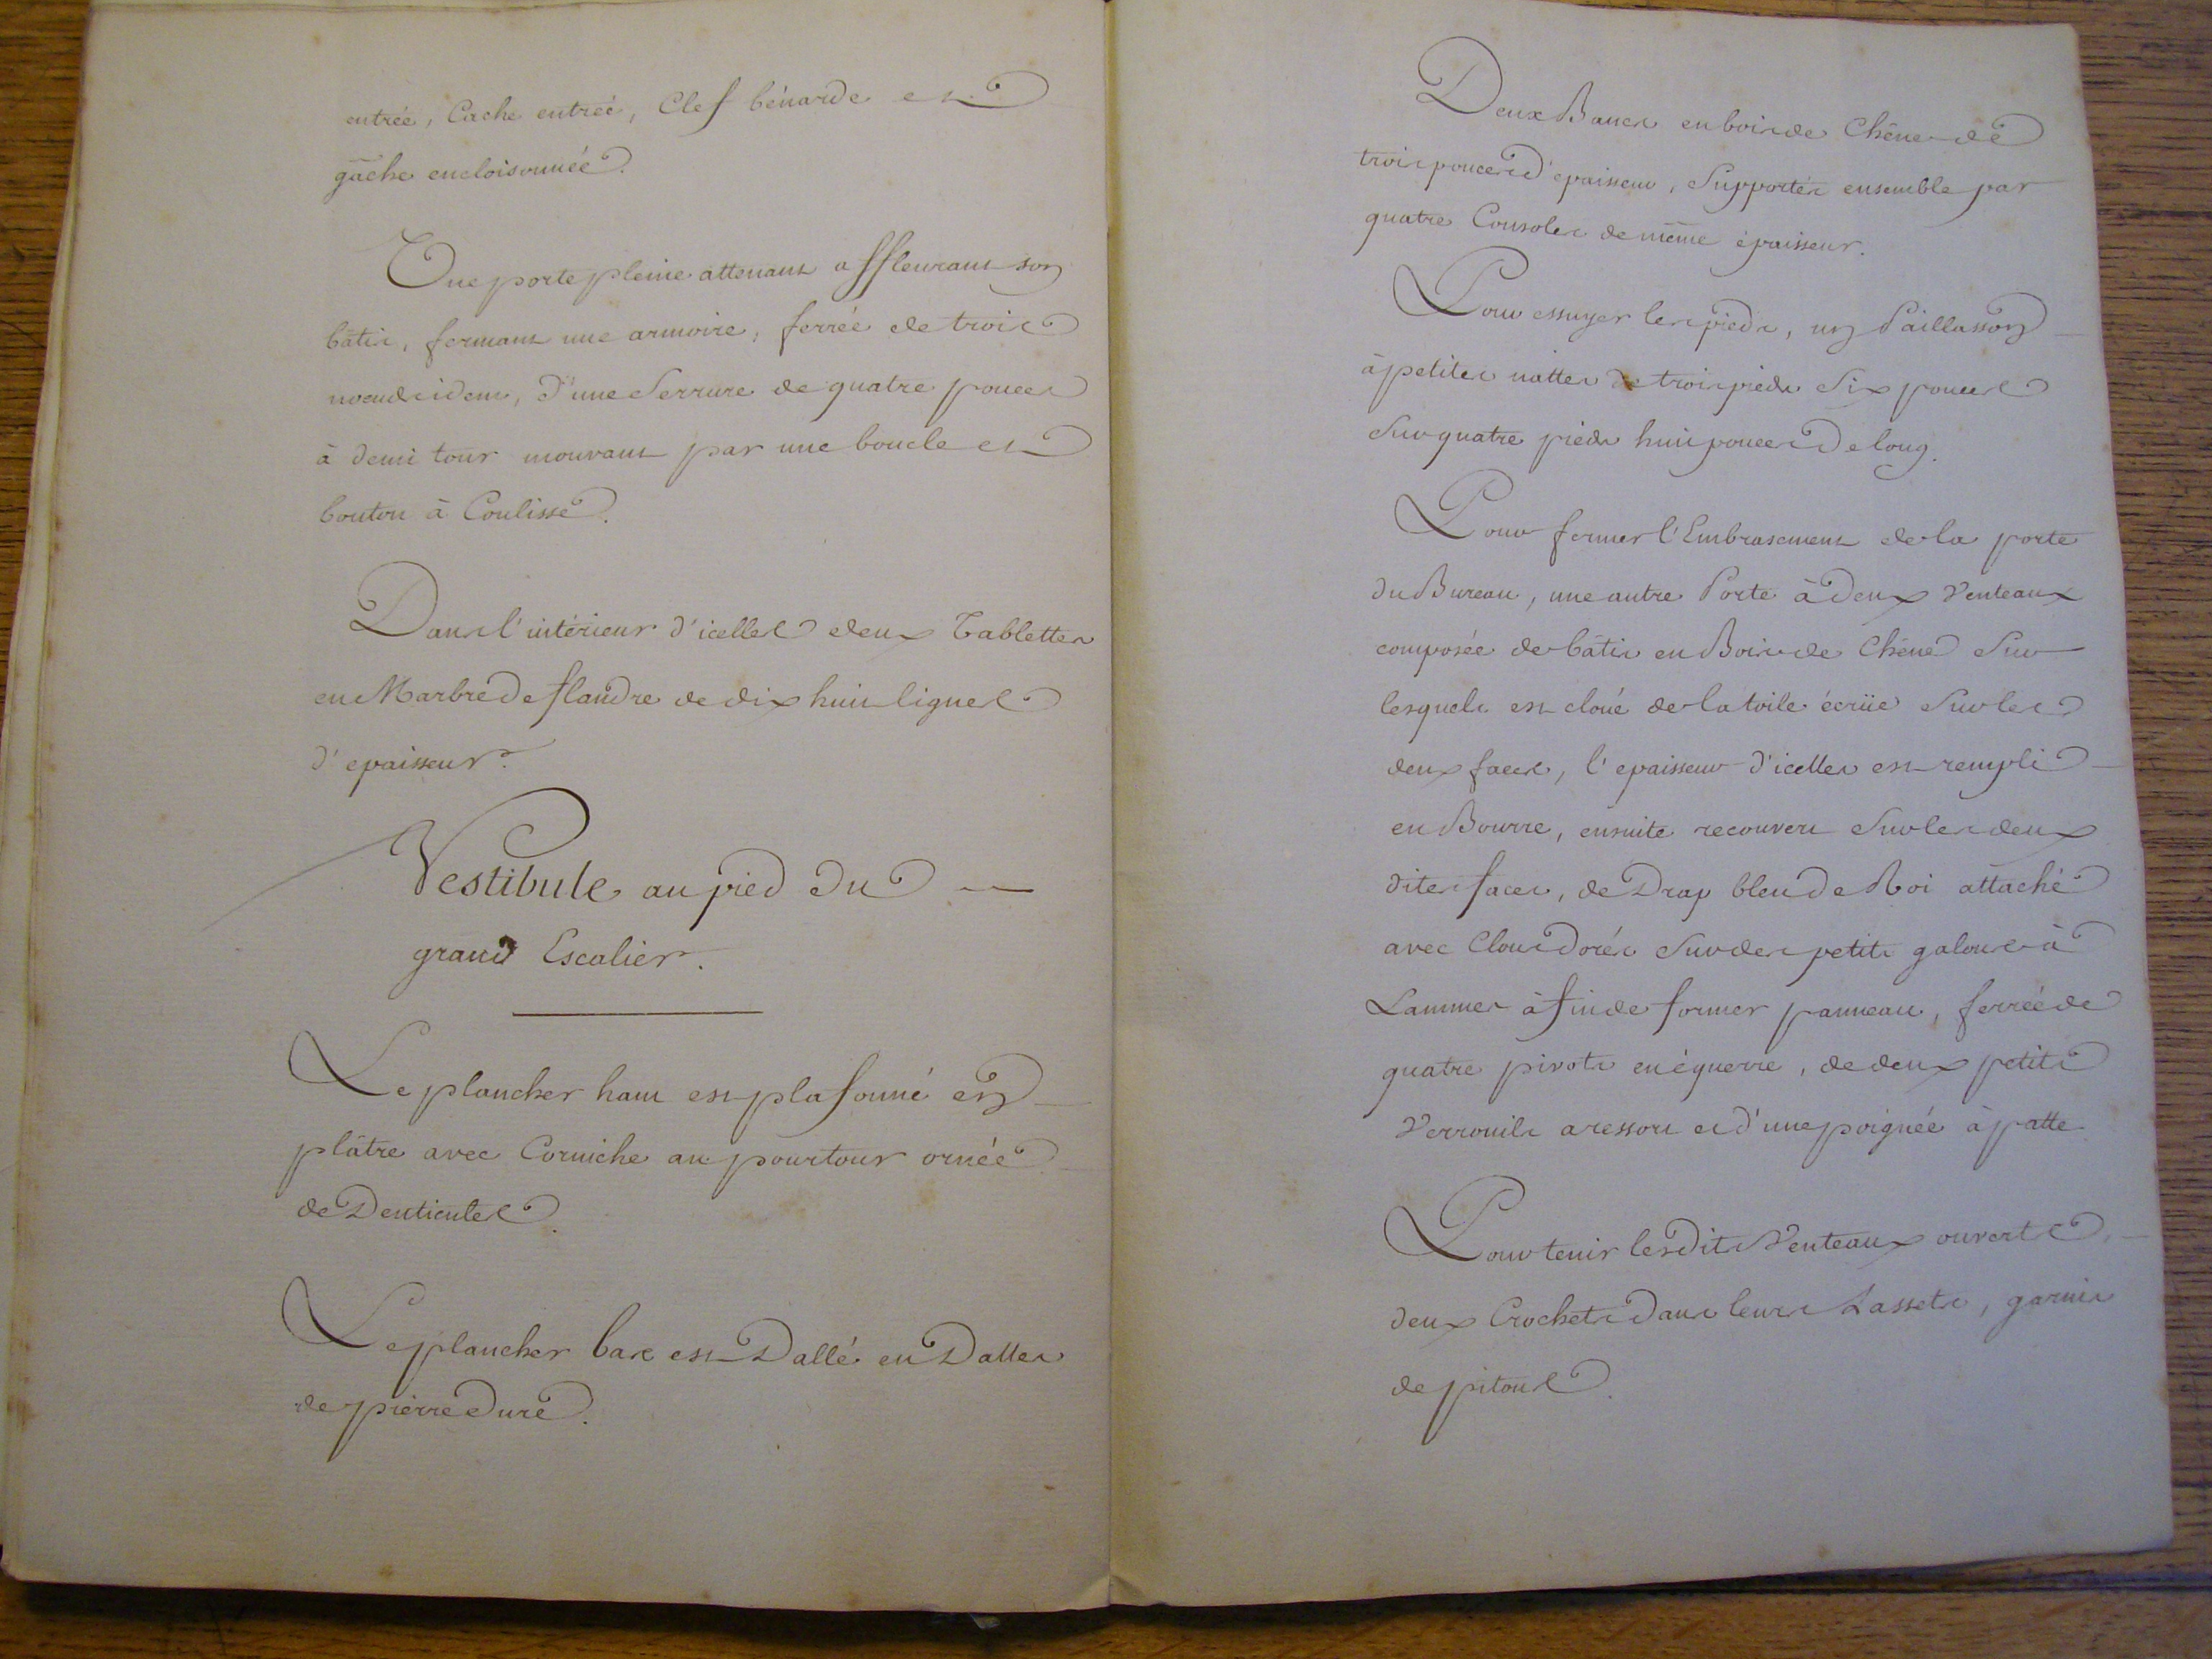 entrée, Cache entrée, Clef bénarde et
gâche encloisonnée.
Une porte pleine attenant affleurant son
bâtis, fermant une armoire, ferrée de trois
noeuds idem, d'une Serrure de quatre pouces
à demi tour mouvant par une boucle et
bouton à Coulisse.
Dans l'intérieur d'icelles deux Tablettes
en Marbre de flandre de dix huit lignes
d'epaisseur.
Vestibule au pied du
grand Escalier.
Le plancher haut est plafonné en
plâtre avec Corniche au pourtour ornée
de Denticules.
Le plancher bas est Dallé en Dalles
de pierre Dure.
Deux Bancs en bois de Chêne de
trois pouces d'epaisseur, Supportés ensemble par
quatre Consoles de même épaisseur.
Pour essuyer les pieds, un Paillasson
à petites nattes de trois pieds Six pouces
Sur quatre pieds huit pouces De long.
Pour fermer l'Embrasement de la porte
du Bureau, une autre Porte à Deux Venteaux
composée de bâtis en Bois de Chêne Sur
lesquels est cloué de la toile écrüe Sur les
deux faces, l'epaisseur d'icelles est rempli
en Bourre, ensuite recouvert Sur les deux
dites faces, de Drap bleu de Roi attaché
avec Clous Dorés Sur des petits galons à
Lammes àfin de former panneau, ferrée de
quatre pivots en équerre, de deux petits
Verrouils a ressort et d'une poignée à patte
Pour tenir lesdits Venteaux ouverts,
deux Crochets Dans leurs Lassets, garnis
de pitons.